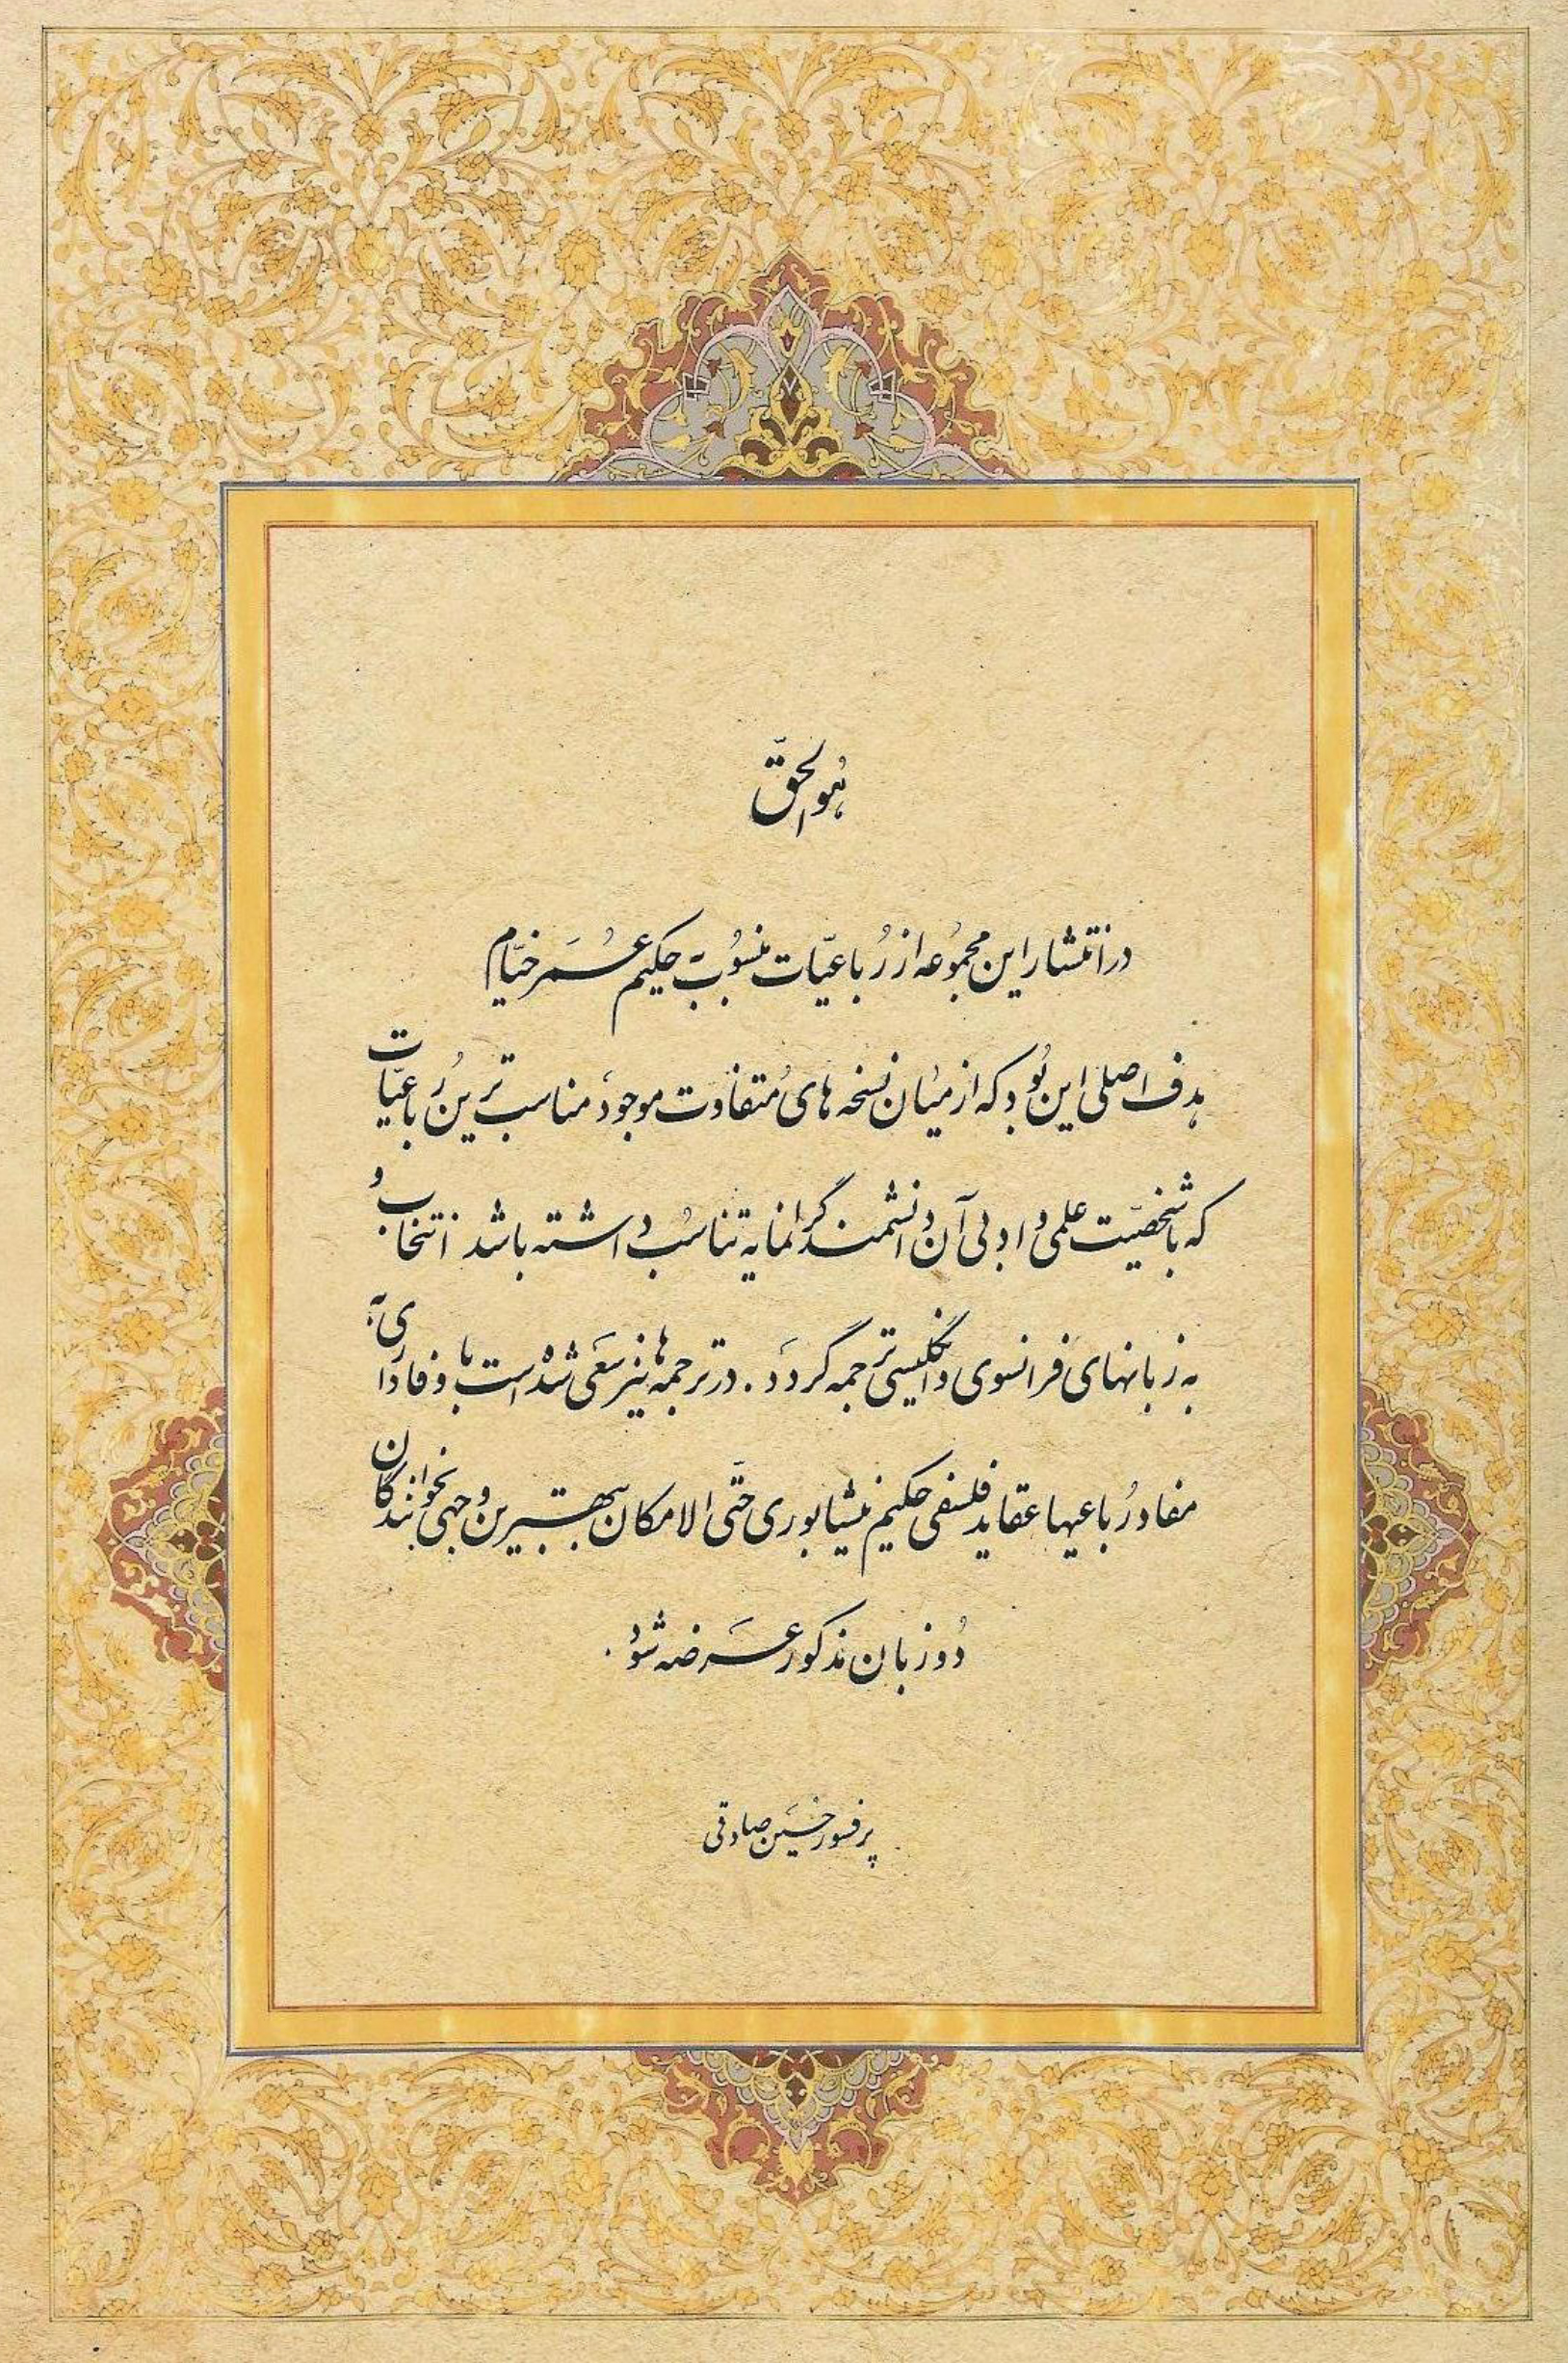 هُوالحقّ
در انتشار این مجمُوعه از رُباعیّات منسُوب به حکیم عُمَر خیّام
هدف اصلی این بُود که از میان نسخه های مُتفاوت موجود مناسب ترین رُباعیّات
که باشخصیّت علمی و ادبی آن دانشمند گرانمایه تناسُب داشته باشد انتخاب و
به زبانهای فرانسوی و انگلیسی ترجمه گردد. در ترجمه ها نیز سَعی شده است با وفاداری به
مفاد رُباعیها عقاید فلسفی حکیم نیشابوری حتّی الامکان به بهترین وجهی بخوانندگان
دُو زبان مذکور عَرضه شود.
پرفسور حُسَین صادقی